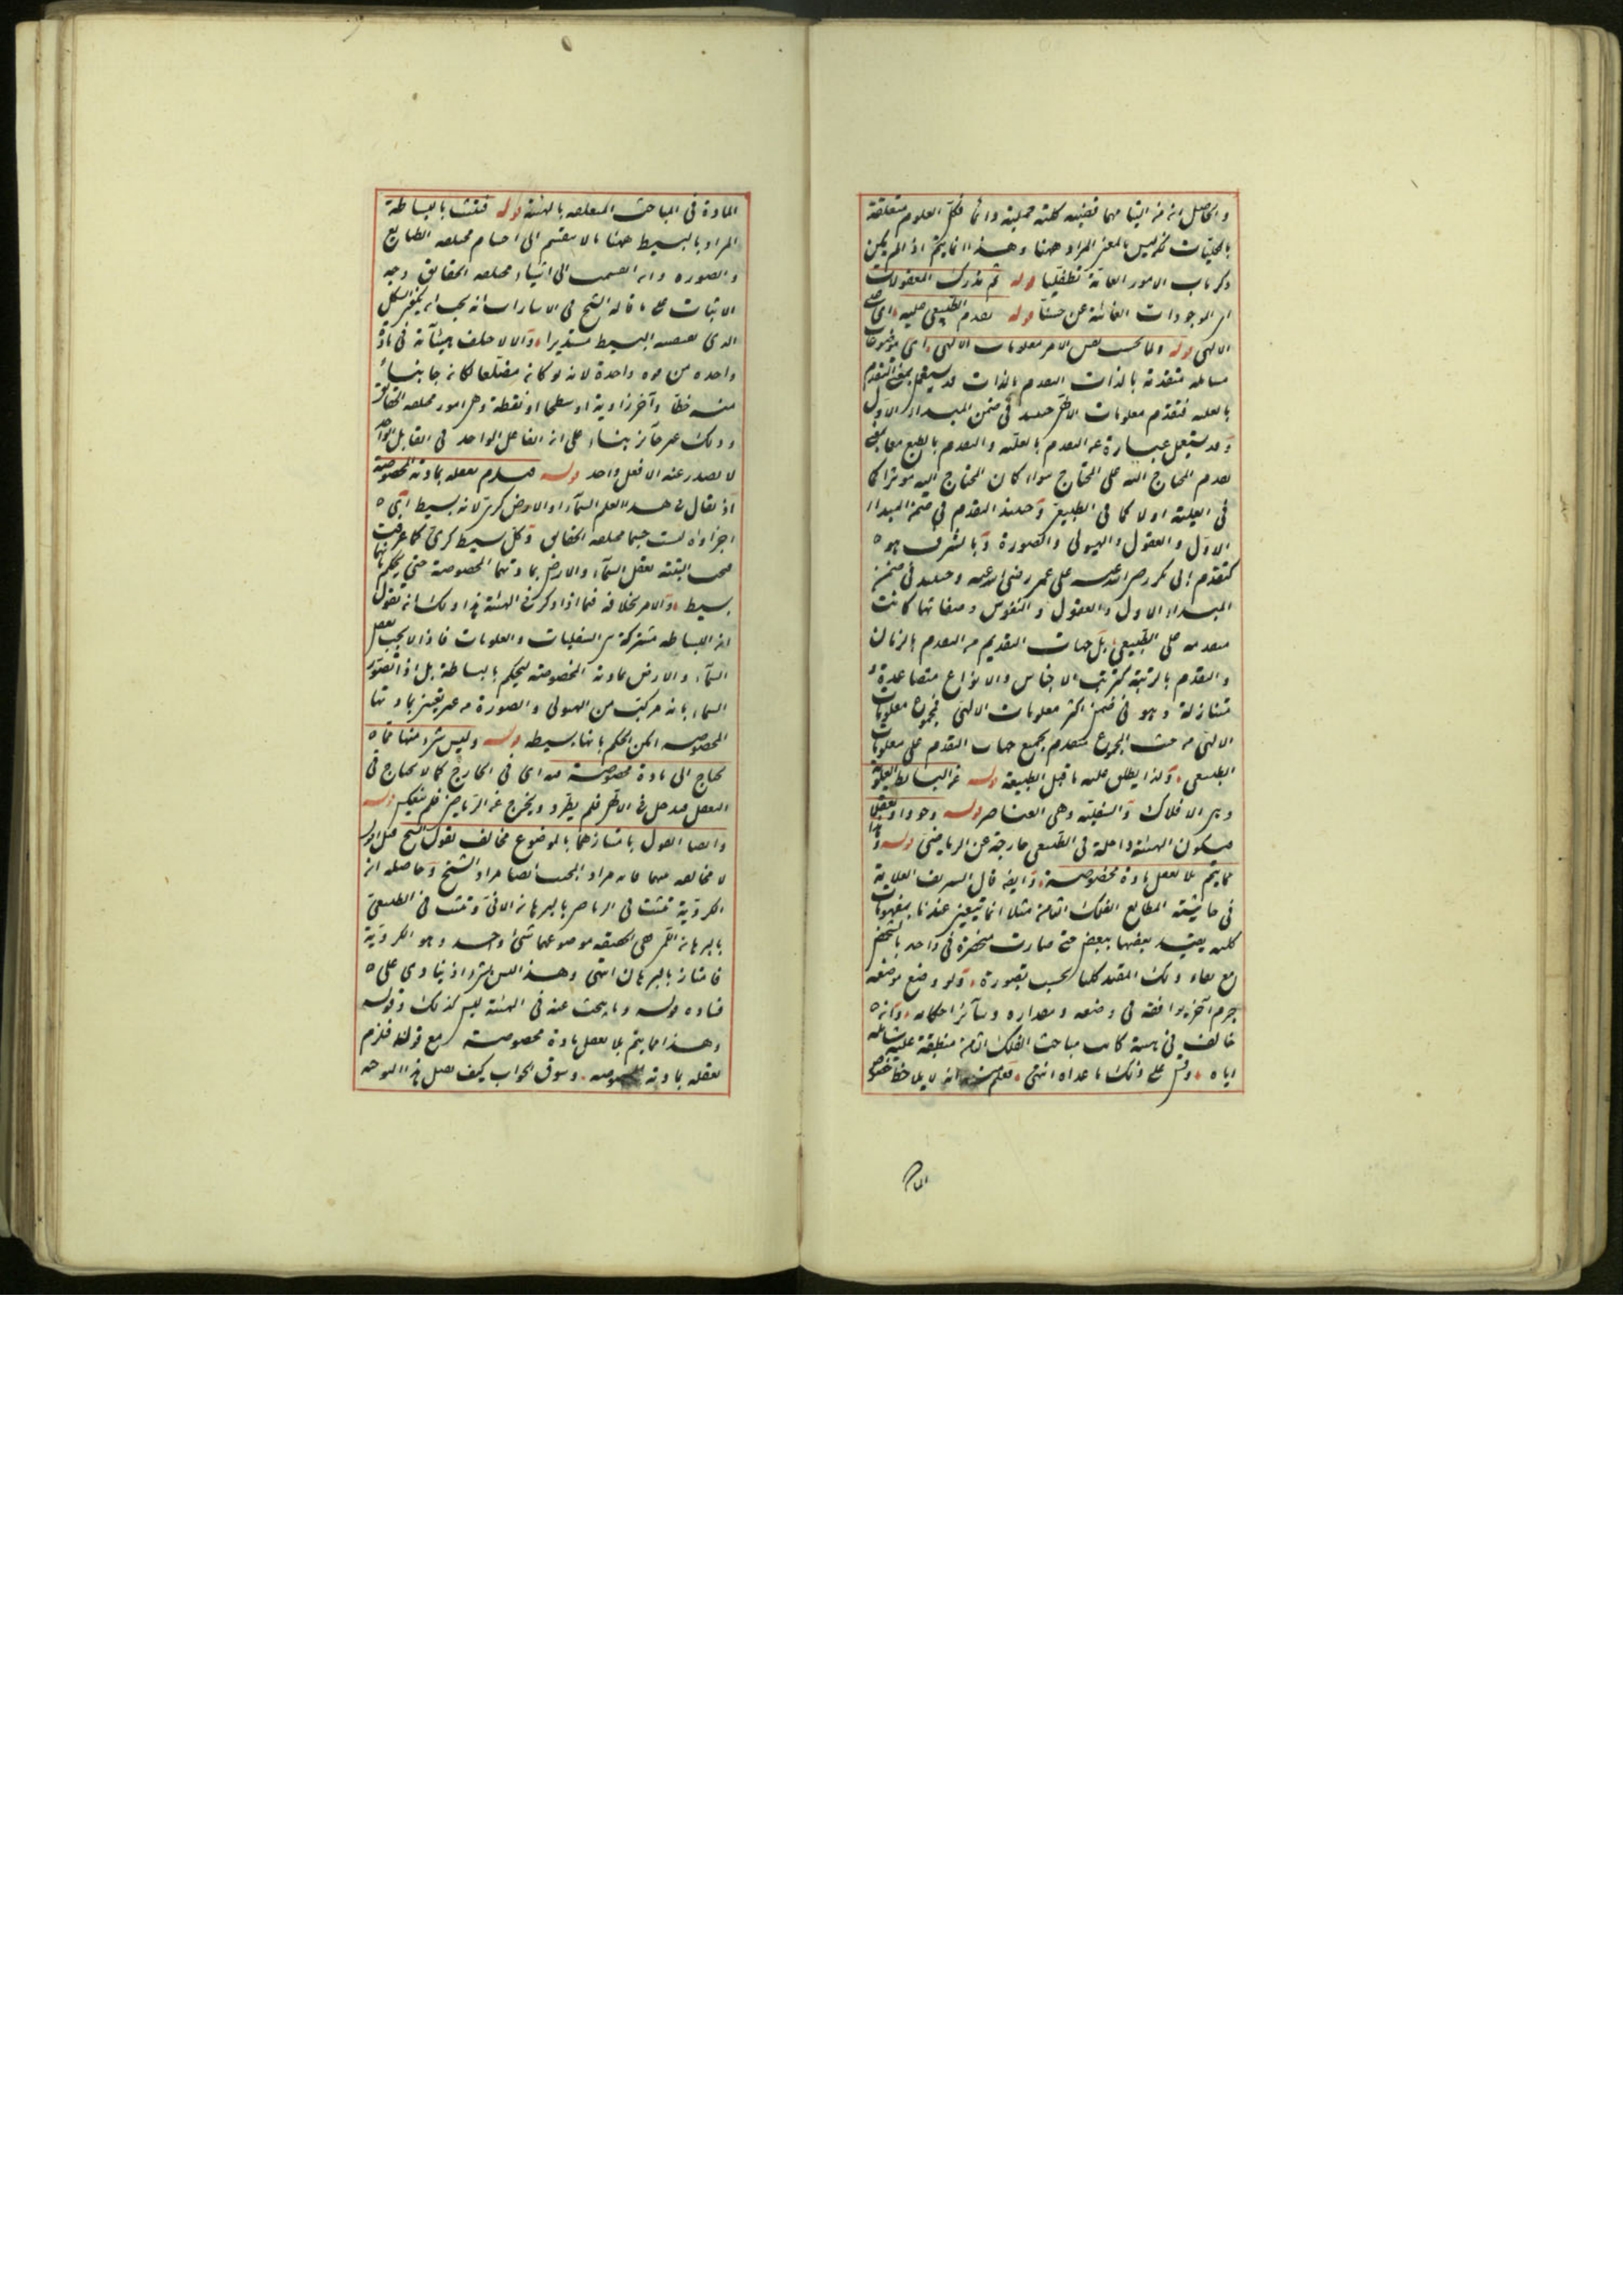 والحاصل انه من البيا مهما قضيه كلية حملية دائما فكل العلوم متعلقة
بالكليات فليس المراد ههنا وهذا انما يتم اذا لم يكن
ذكر باب الامور العامة تطفليا قوله ثم يدرك المعقولات
اى الموجودات الغائبة عن حسنا قوله تقدم الطبيعي عليه اى على
الالهى قوله واما بحسب نفس الامر معلومات الالهى اى موضوعات
مسائله متقدمة بالذات التقدم بالذات قد يستعمل بمعنى التقدم
بالعلية فتقدم معلومات الالهى حينئذ فى ضمن المبداء الاول
وقد يستعمل عبارة عن التقدم بالعلية والتقدم بالطبع معا
تقدم المحتاج اليه على المحتاج سواء كان المحتاج اليه موثرا كما
فى العلية او لا كما فى الطبيعى وحينئذ التقدم فى ضمن المبداء
الاول والعقول والهيولى والصورة وبالشرف هو
كتقدم ابى بكر رضى الله عنه على عمر رضى الله عنه وحينئذ فى ضمن
المبداء الاول والعقول والنفوس وصفاتها كانت
متقدمة على الطبيعى بل جهات التقديم من التقدم بالزمان
والتقدم بالرتبة كترتيب الاجناس والانواع متصاعدة و
متنازلة وهو فى ضمن اكثر معلومات الالهى فمجموع معلومات
الالهى من حيث المجموع متقدم بجميع جهات التقدم على معلومات
الطبيعى ولذا يطلق عليه ما قبل الطبيعة قوله من البسايط العلوية
وهى الافلاك والسفلية وهى العناصر قوله وجودا وتعقلا
فيكون الهيئة داخلة فى الطبيعى خارجة عن الرياضى قوله وهذا
مما يتم بلا تعقل مادة مخصوصة وايضا قال الشريف العلامة
فى حاشية المطالع الفلك الثامن مثلا انما يتعين عندنا بمفهومات
كلية يقيد بعضها ببعض حتى صارت منحصرة فى واحد بالشخص
مع بقاء ذلك المقيد كليا بحسب تصوره ولو وضع موضعه
جرم آخر يوافقه فى وضعه ومقداره وسائر احكامه وانه
خالف فى كانت مباحث الفلك الثامن منطبقة عليه شاملة
اياه وقس على ذلك ما عداه انتهى فعلم منه انه لا يلاحظ خصوص
المادة
المادة فى المباحث المتعلقة بالهيئة قوله فتشا بالبساطة
المراد بالبسيط ههنا ما لا ينقسم الى اجسام مختلفة الطبايع
والصورة وان انقسمت الى اشياء مختلفة الحقايق وجه
الاثبات على ما قاله الشيخ فى الاشارات انه يجب ان يكون الشكل
الذى يقتضيه البسيط مستديرا والا لاختلف هيئاته فى مادة
واحدة من قوة واحدة لانه لو كانه مضلعا لكانه جانبا
منه خطا وآخر زاوية او سطحا او نقطة وهى امور مختلفة الحقائق
وذلك غير جائز بناء على ان الفاعل الواحد فى القابل الواحد
لا يصدر عنه الا فعل واحد قوله فيلزم تعقله بمادته المخصوصة
اذ يقال فى هذا العلم السماء والارض كرى لانه بسيط اى
اجزاؤه ليست جسما مختلفة الحقائق وكل بسيط كرى كما عرفت
فيجب البتة تعقل السماء والارض بمادتهما المخصوصة حتى يحكم بانهما
بسيط والامر بخلافه فما اذا ذكر فى الهيئة هذا وذلك انه نقول
ان البساطة مشتركة بين السفليات والعلويات فاذا لا يجب تعقل
السماء والارض بمادته المخصوصة ليحكم بالبساطة بل اذا تصور
السماء بانه مركبة من الهيولى والصورة من غير تعين مادتها
المخصوصة امكن الحكم بانها بسيطة قوله وليس شىء منها مما
يحتاج الى مادة مخصوصة فيه اى فى الخارج كما لا يحتاج فى
التعقل فدخل فى الالهى فلم يطرد ويخرج من الرياضى فلم ينعكس قوله
وايضا القول بامتيازهما بالموضوع مخالف لقول الشيخ قيل اقول
لا مخالفة بينهما فانه مراد المجيب ايضا مراد الشيخ وحاصله ان
الكروية تثبت فى الرياضى بالبرهان الانى وتثبت فى الطبيعى
بالبرهان اللمى ففى الحقيقة موضوعهما شىء واحد وهو الكروية
فامتاز بالبرهان انتهى وهذا ليس بشىء اذ ينادى على
فساده قوله وما يبحث عنه فى الهيئة ليس كذلك وقوله
وهذا مما يتم بلا تعقل مادة مخصوصة مع قوله فلزم
تعقله بمادته مخصوصة وسوق الجواب كيف يصل هذا التوجيه